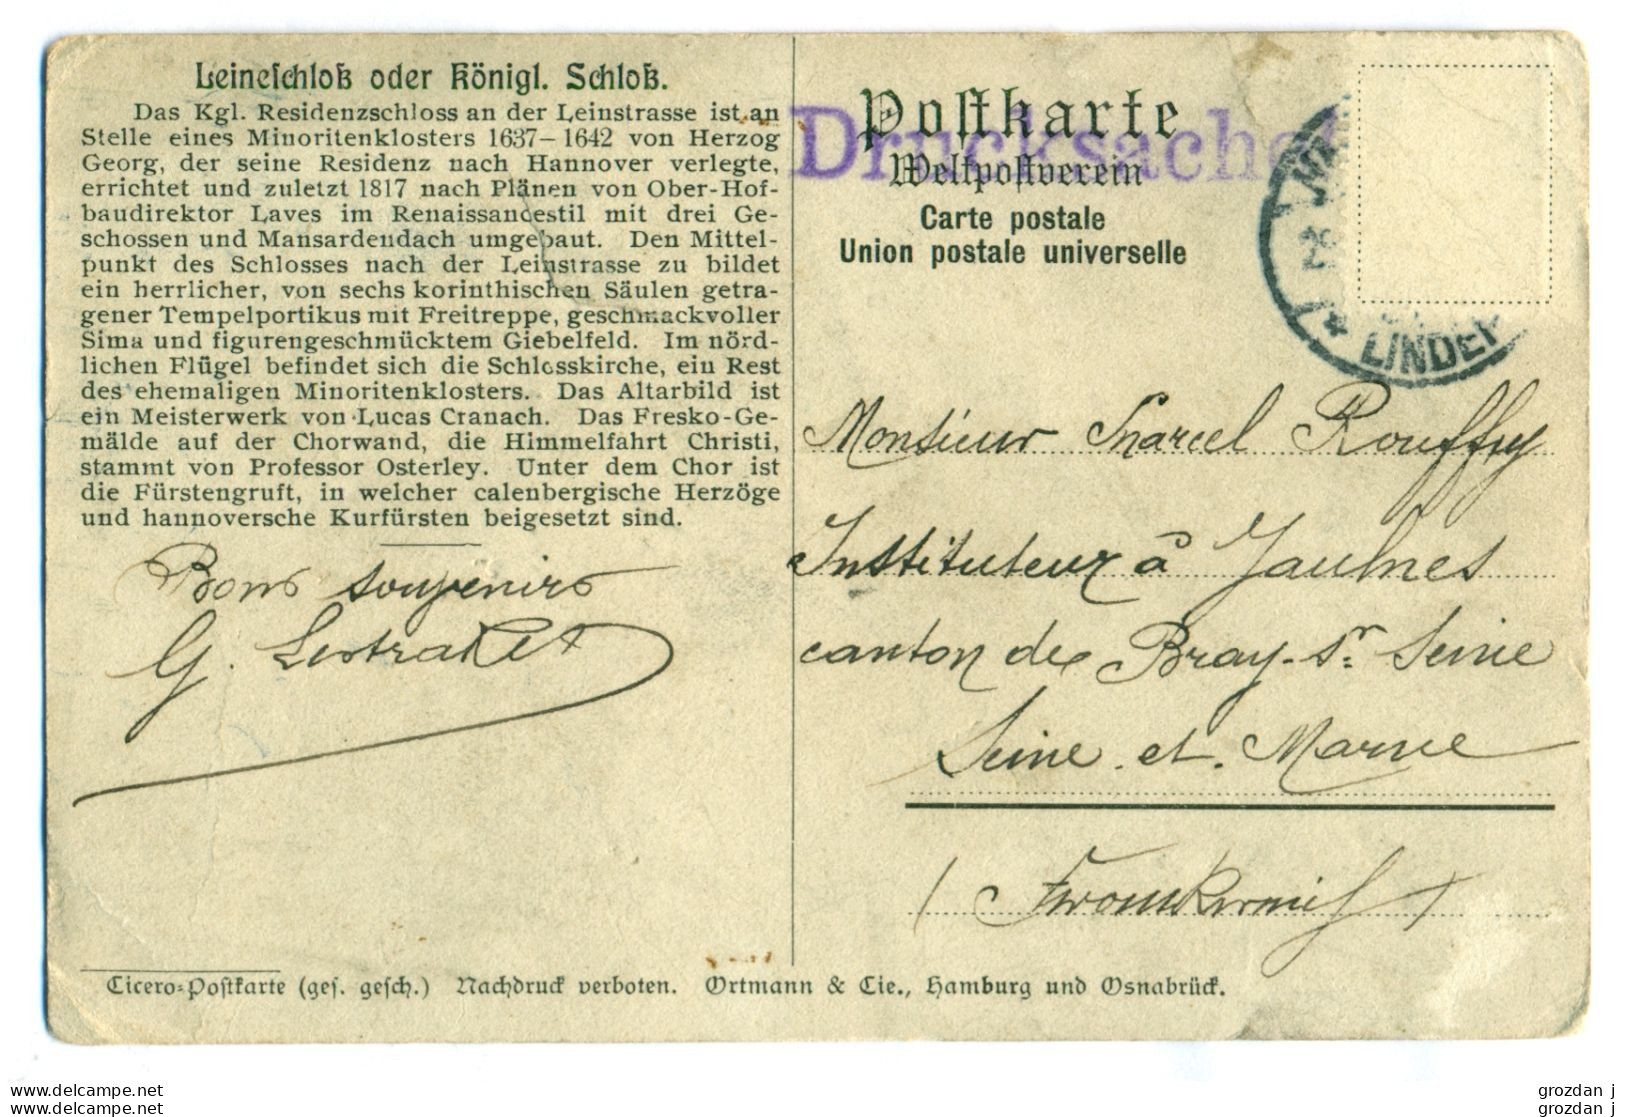 Leineschloß oder Königl. Schloß.
Das Kgl. Residenzschloss an der Leinstrasse ist an
Stelle eines Minoritenklosters 1637–1642 von Herzog
Georg, der seine Residenz nach Hannover verlegte,
errichtet und zuletzt 1817 nach Plänen von Ober-Hof-
baudirektor Laves im Renaissancestil mit drei Ge-
schossen und Mansardendach umgebaut. Den Mittel-
punkt des Schlosses nach der Leinstrasse zu bildet
ein herrlicher, von sechs korinthischen Säulen getra-
gener Tempelportikus mit Freitreppe, geschmackvoller
Sima und figurengeschmücktem Giebelfeld. Im nörd-
lichen Flügel befindet sich die Schlosskirche, ein Rest
des ehemaligen Minoritenklosters. Das Altarbild ist
ein Meisterwerk von Lucas Cranach. Das Fresko-Ge-
mälde auf der Chorwand, die Himmelfahrt Christi,
stammt von Professor Osterley. Unter dem Chor ist
die Fürstengruft, in welcher calenbergische Herzöge
und hannoversche Kurfürsten beigesetzt sind.
Bons souvenirs
G.
Postkarte
Drucksache
Weltpostverein
Carte postale
Union postale universelle
29
* LINDEN
Monsieur Marcel Rouffy
Instituteur à Jaulnes
canton de Bray-sr Seine
Seine et Marne
Cicero-Postkarte (ges. gesch.) Nachdruck verboten. Ortmann & Cie., Hamburg und Osnabrück.
www.delcampe.net
www.delcampe.net
grozdan j
grozdan j